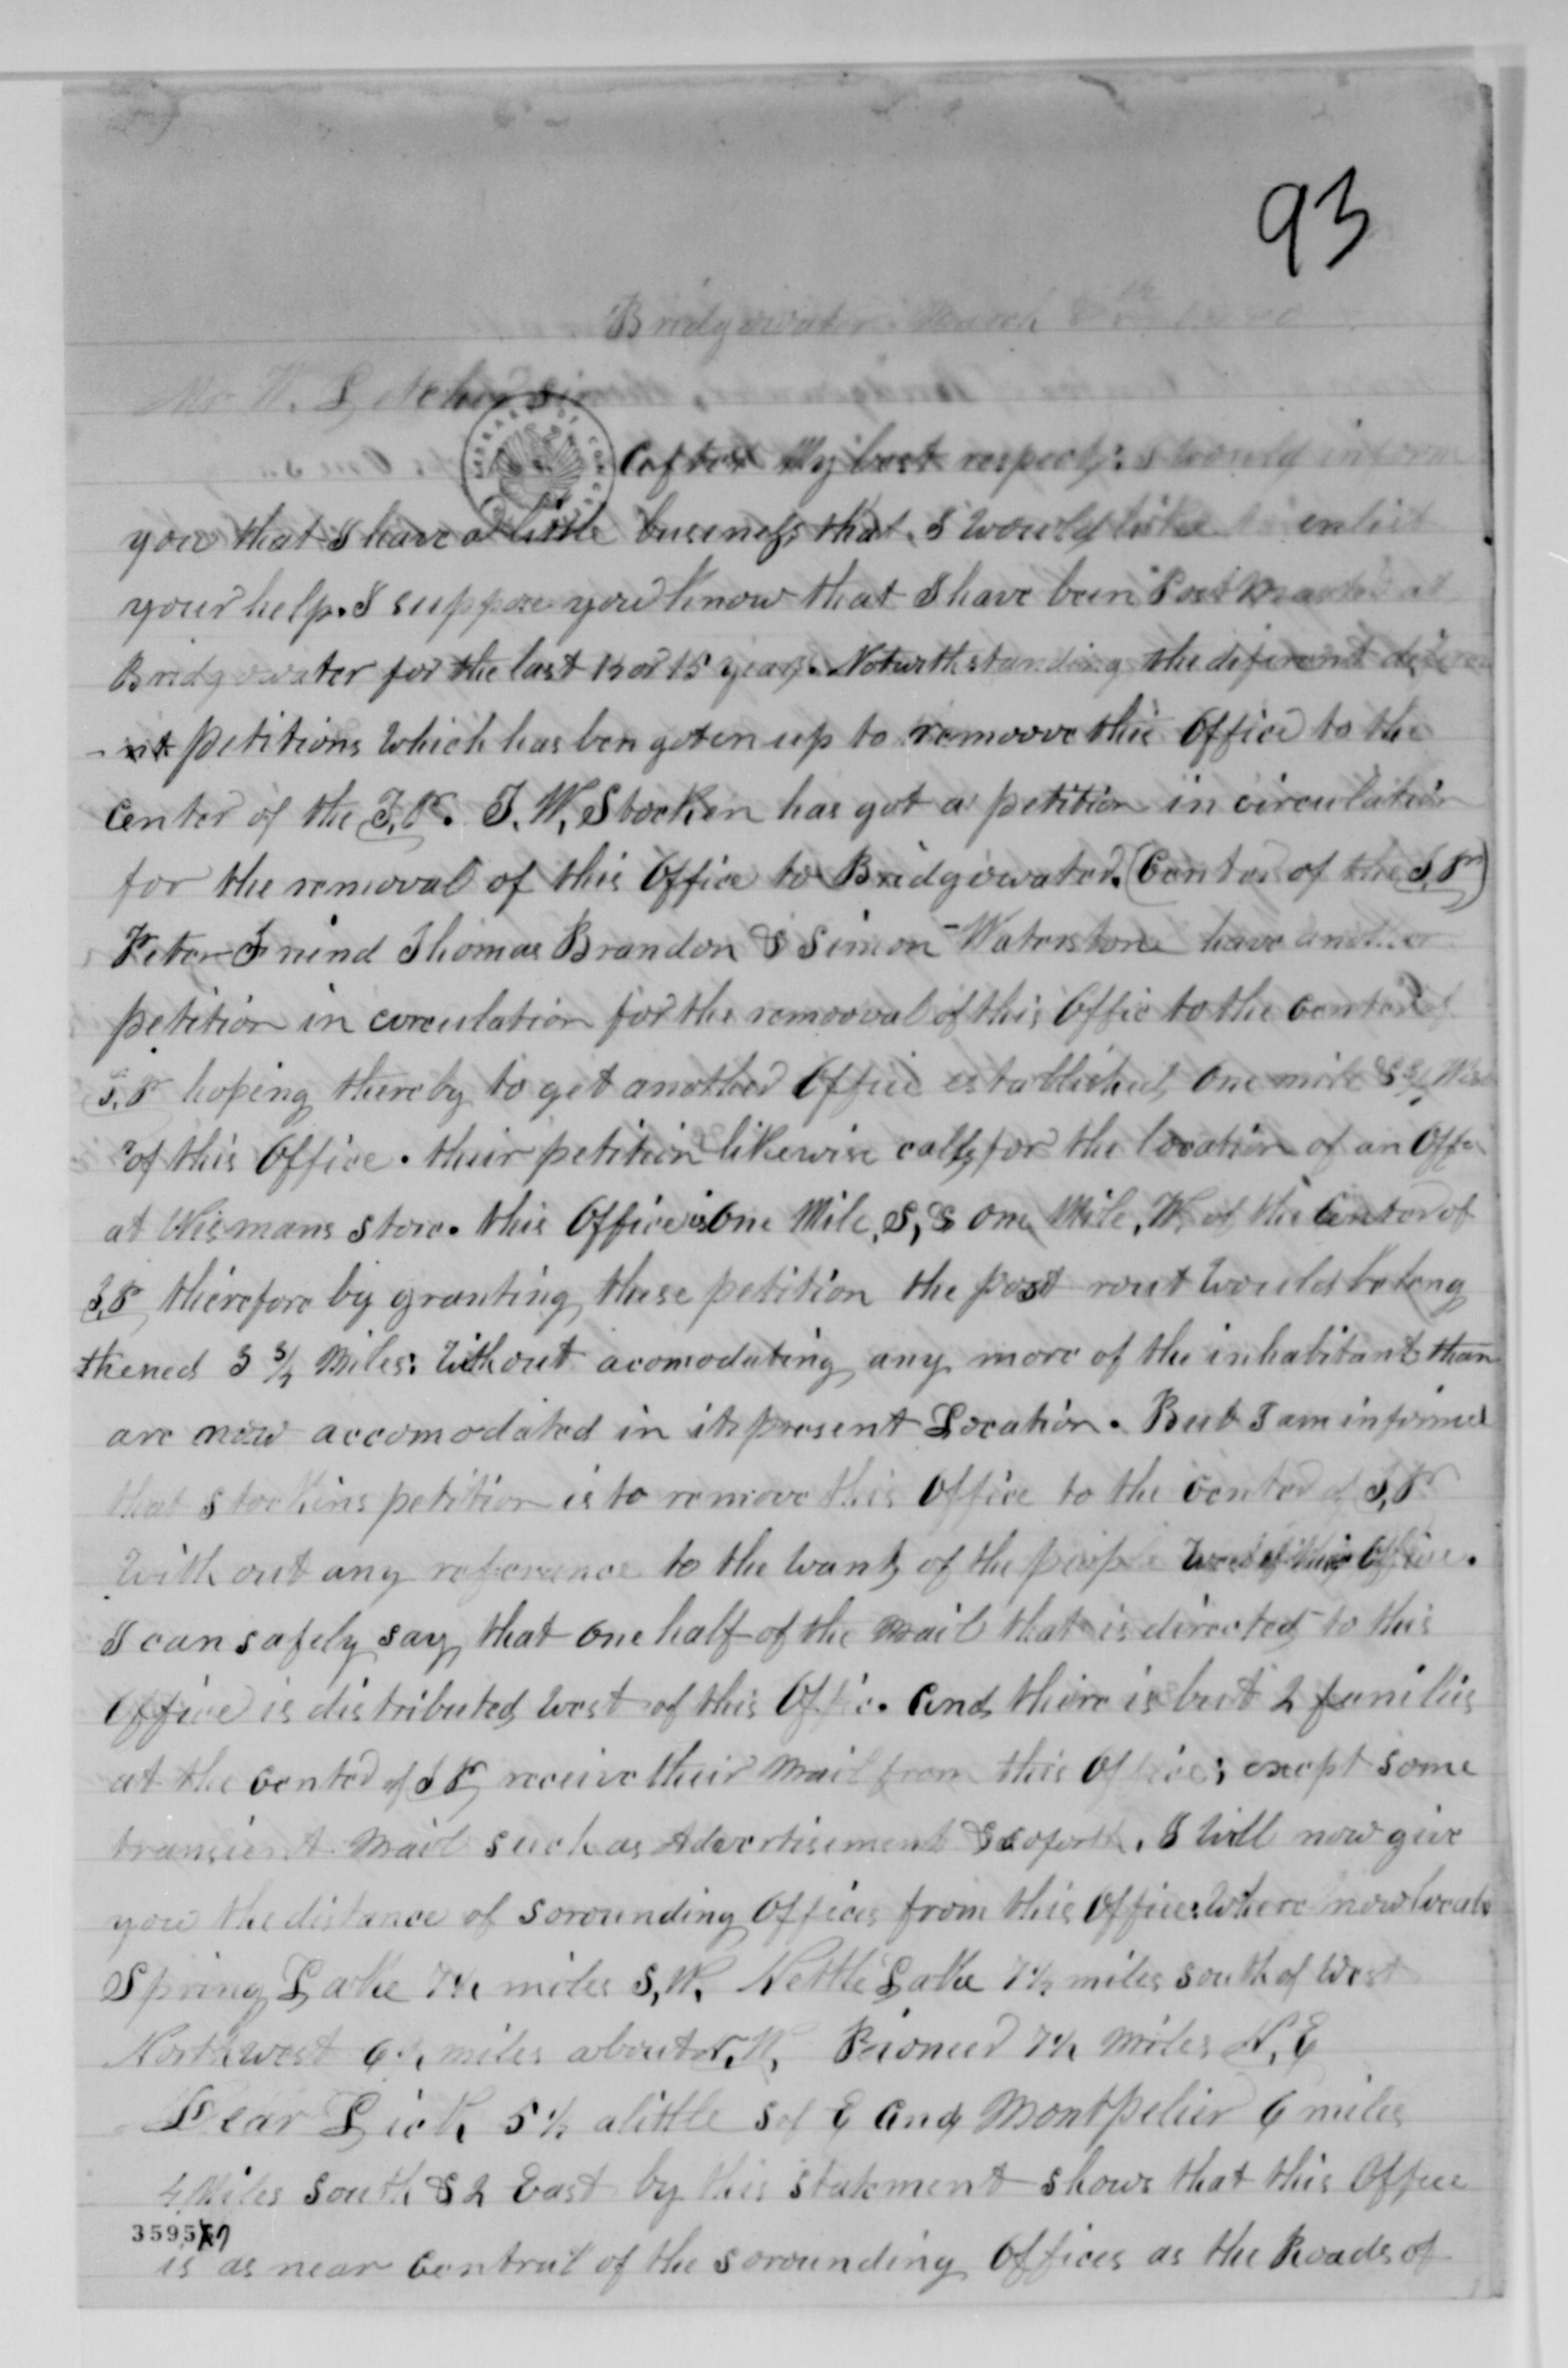 93
Bridgewater March
Mr W.
After My best respects. I would inform
you that I have a little business that I would like to enlist
your help. I suppose you know that I have been Post Master at
Bridgewater for the last or 15 years. Notwithstanding the diferent
petitions which has ben goten up to remoove this Office to the
Center of the T.P. J. W. Stocken has got a petition in circulation
for the removal of this Office to Bridgewater (Center of the T.P.)
Peter Friend Thomas Brandon & Simon Waterstone have another
petition in circulation for the remooval of this Offic to the center of
T.P. hoping thereby to get another Office established One mile West
of this Office. their petition likewise calls for the location of an
at Wismans store. this Office is One Mile, S, & one Mile, W, of the Center of
T.P. therefore by granting these petition the post rout would be leng
thened 3 miles: Without acomodating any more of the inhabitants than
are now accomodated in its present Location. But I am informed
that Stockins petition is to remove this Office to the center of T.P.
With out any reference to the wants of the people West of this Office.
I can safely say that one half of the mail that is directed to this
Office is distributed West of this Offic. And there is but 2 families
at the center of T P receive their mail from this Office; except some
transient mail such as Advertisements & so forth. I will now give
you the distance of sorounding Offices from this Office Where now
Spring Lake miles S, W, Nettle Lake 7 1/2 miles south of West
Northwest miles about N. W. Pioneer miles N, E
Bear Lick 5 1/2 a little S of E And Montpelier 6 miles
4 Miles South & 2 East by this statement shows that this Office
35957
is as near central of the sorounding Offices as the Roads of